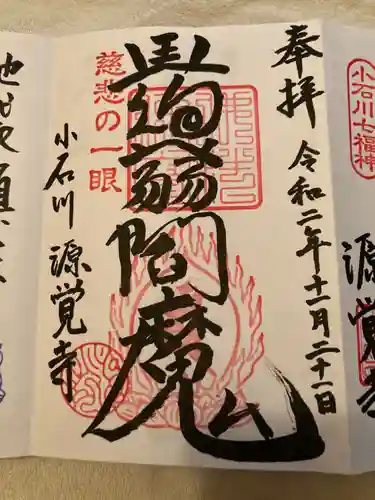 小石川七福神
源覚寺
奉拝 令和二年十一月二十一日
蒟蒻閻魔
慈悲の一眼
小石川 源覚寺